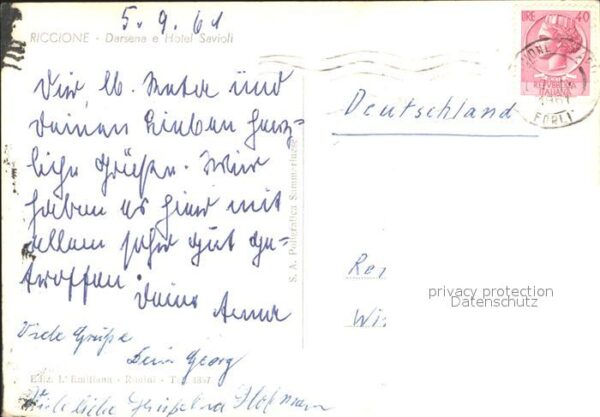 5. 9. 61
RICCIONE - Darsena e Hotel Savioli
Dir lb. Meta und
Deinen Lieben herz-
liche Grüße. Wir
haben es hier mit
allem sehr gut ge-
troffen.
Deine Anna
Viele Grüße
Dein Georg
Herzliche Grüße
Ediz. L'Emiliana - Rimini - Tel. 1857
S. A. Poligrafica Sammarinese
LIRE 40
REPUBBLICA
ITALIANA
1961
FORLI
Deutschland
privacy protection
Datenschutz